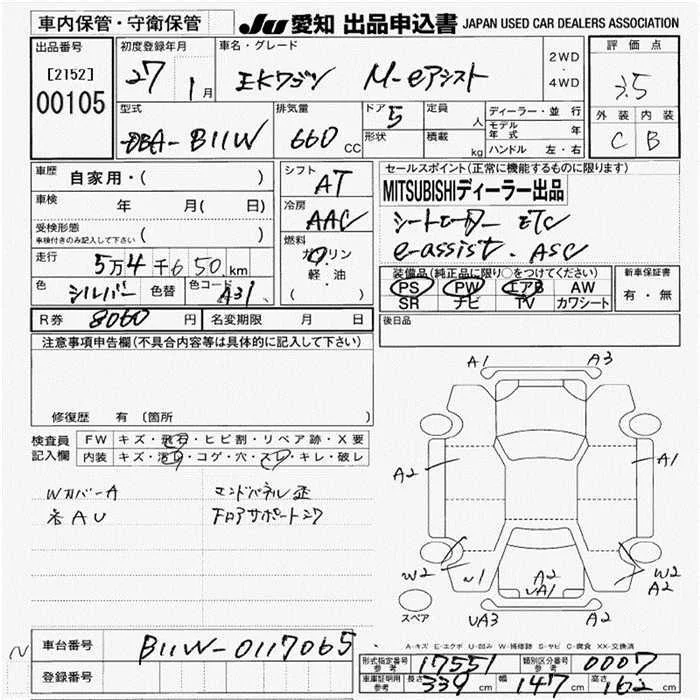 車内保管・守衛保管
JU 愛知 出品申込書 JAPAN USED CAR DEALERS ASSOCIATION
出品番号
[2152]
00105
初度登録年月
27 1月
車名・グレード
EKワゴン M-eアシスト
2WD
・
4WD
評価点
3.5
外装 内装
C B
型式
DBA-B11W
排気量
660 CC
ドア 5
形状
定員 人
積載 kg
ディーラー・並行
モデル年式 年
ハンドル 左・右
車歴 自家用・( )
車検 年 月( 日)
受検形態
車検付きのみ記入して下さい ( )
走行 5万4千650km
色 シルバー 色替 色コード A31
シフト AT
冷房 AAC
燃料
ガソリン
軽・油
( )
セールスポイント(正常に機能するものに限ります)
MITSUBISHIディーラー出品
シートヒーター ETC
e-assist. ASC
装備品(純正品に限り○をつけてください)
PS PW エアB AW
SR ナビ TV カワシート
新車保証書
有・無
R券 8060円 名変期限 月 日
後日品
注意事項申告欄(不具合内容等は具体的に記入して下さい)
修復歴 有(箇所 )
検査員記入欄
FW キズ・飛石・ヒビ割・リペア跡・X要
内装 キズ・汚レ・コゲ・穴・スレ・キレ・破レ
Wカバー A エンドパネル歪
AU ドアサポート27
A1 A3
A2 A1
W2 W1 A2 W2
UA1 A2
UA3 A2
スペア
A-キズ E-エクボ U-凹み W-補修跡 S-サビ C-腐食 XX-交換済
車台番号 B11W-0117065
登録番号
形式指定番号 参考 17551 類別区分番号 参考 0007
車庫証明用 参考 長さ 339 cm 幅 147 cm 高さ 162 cm
N